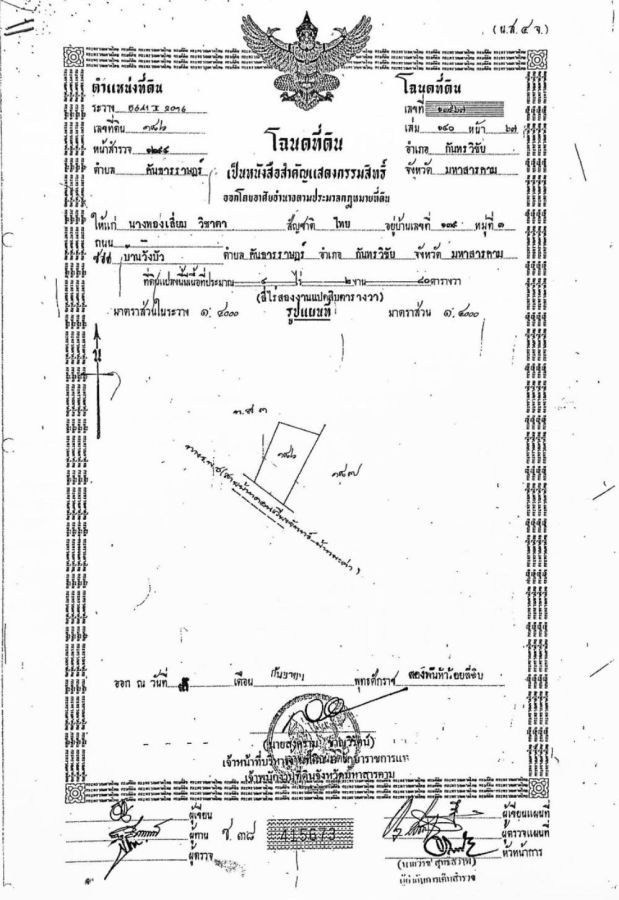 (น.ส.๔ จ.)
ตำแหน่งที่ดิน
ระวาง
เลขที่ดิน ๓๘๖
หน้าสำรวจ
ตำบล คันธารราษฎร์
โฉนดที่ดิน
เลขที่
เล่ม ๑๔๐ หน้า ๖๗
อำเภอ กันทรวิชัย
จังหวัด มหาสารคาม
โฉนดที่ดิน
เป็นหนังสือสำคัญแสดงกรรมสิทธิ์
ออกโดยอาศัยอำนาจตามประมวลกฎหมายที่ดิน
ให้แก่ นางทองเลี่ยม วิชาดา สัญชาติ ไทย อยู่บ้านเลขที่ ๑๓๙ หมู่ที่ ๓
ถนน
บ้านวังบัว ตำบล คันธารราษฎร์ อำเภอ กันทรวิชัย จังหวัด มหาสารคาม
ที่ดินแปลงนี้เนื้อที่ประมาณ ๔ ไร่ ๒ งาน ๘๐ ตารางวา
(สี่ไร่สองงานแปดสิบตารางวา)
มาตราส่วนในระวาง ๑:๔๐๐๐ รูปแผนที่ มาตราส่วน ๑:๔๐๐๐
น
๓๘๖
๓๘๗
ออก ณ วันที่ เดือน กันยายน พุทธศักราช สองพันห้าร้อยสี่สิบ
เจ้าพนักงานที่ดินจังหวัดมหาสารคาม
ผู้เขียน
ผู้ทาน
ผู้ตรวจ
ช ๓๘
415673
ผู้เขียนแผนที่
ผู้ตรวจแผนที่
หัวหน้าการ
ผู้กำกับการเดินสำรวจ